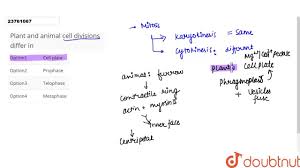 23761067
Plant and animal cell divisions
differ in
Option1 Cell plate
Option2 Telophase
Option3 Metaphase
Option4 Anaphase
→ Mitosis
→ karyokinesis = Same
→ Cytokinesis : different
animal : furrow
↓
Contractile ring
actin + myosin
↓ inner face
Centripetal
Plant :
Mg²⁺/Ca²⁺ Pectate
Cell Plate
↑
Phragmoplast
+ Vesicles
fuse
doubtnut